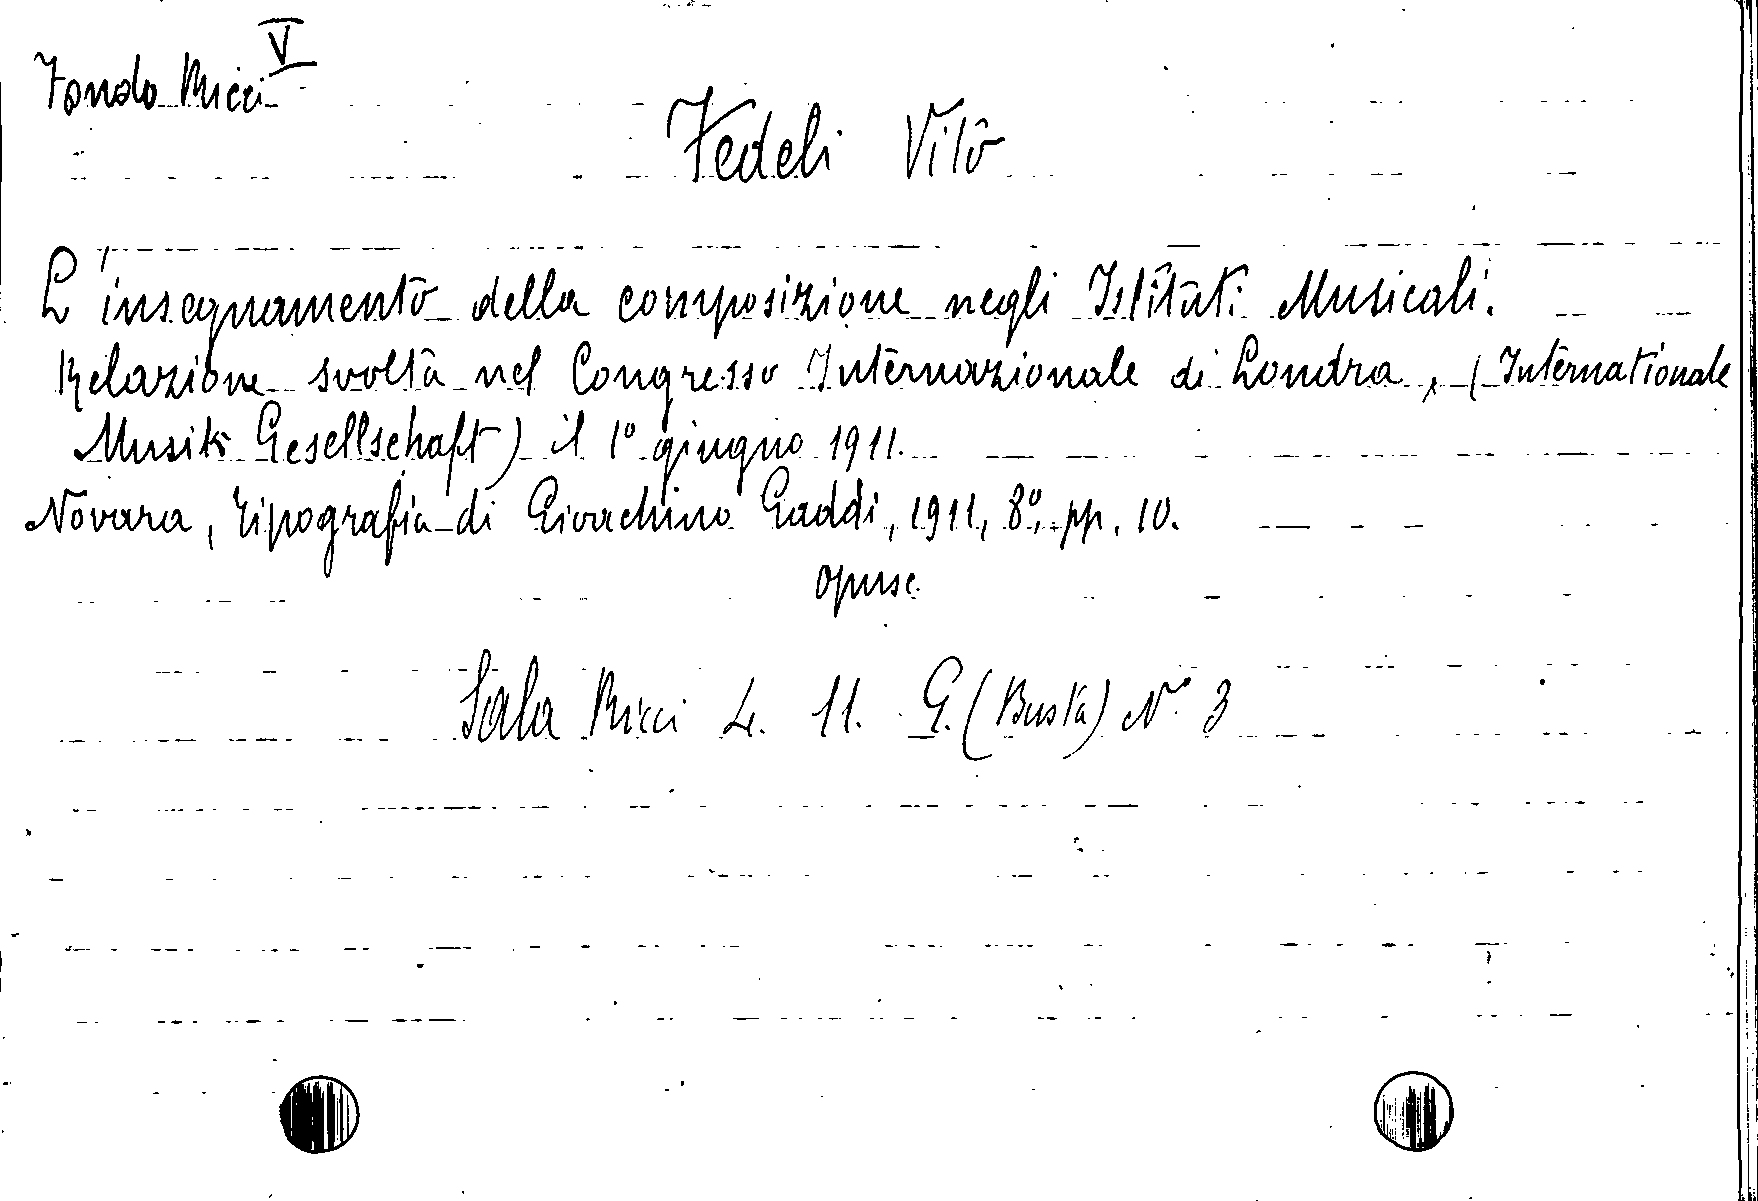 Fondo Ricci V
Fedeli Vito
L'insegnamento della composizione negli Istituti Musicali.
Relazione svolta nel Congresso Internazionale di Londra, (Internationale
Musik Gesellschaft) il 1° giugno 1911.
Novara, Tipografia di Gioachino Gaddi, 1911, 8°, pp. 10.
opusc.
Sala Ricci L. 11. G. (Busta) N° 3